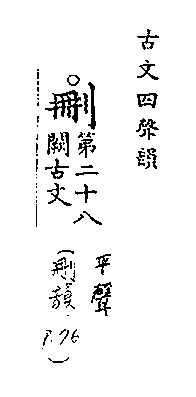 古文四聲韻
○刪
第二十八
闕古文
平聲
(刪韻 P.76)